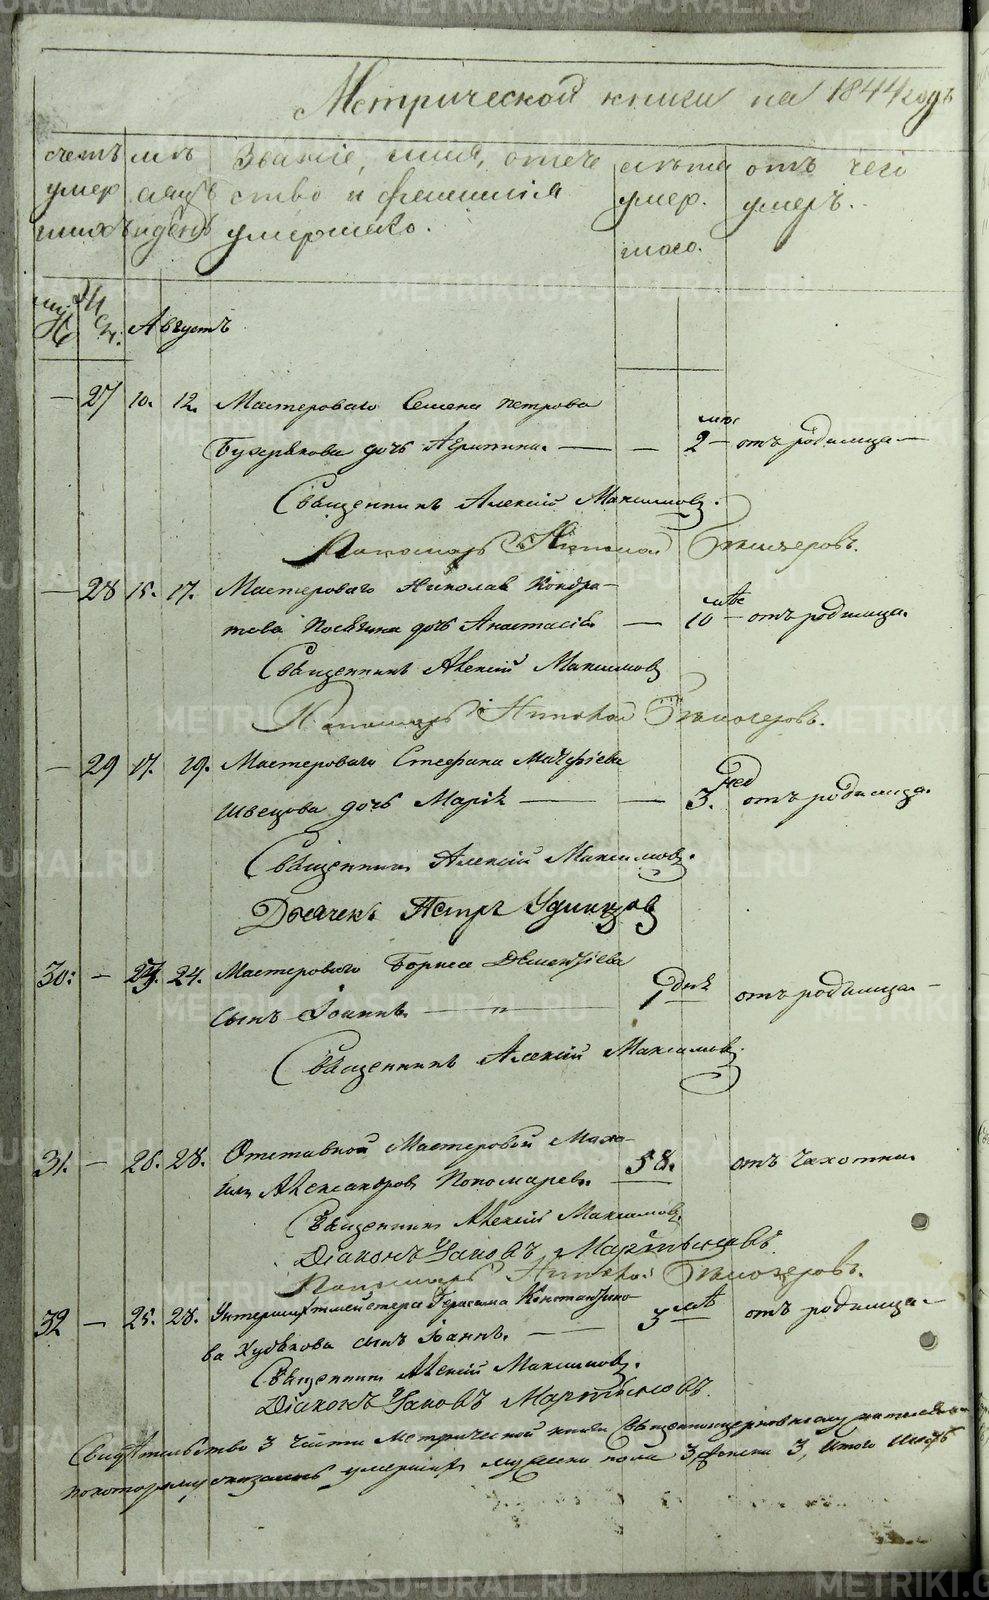 Метрической книги на 1844 годъ
счетъ умер шихъ
мѣсяцъ и день
Званіе, имя, отече
ство и фамилія
умершаго.
лѣта
умер.
шаго.
отъ чего
умеръ.
муж Жен.
Августъ
— 27 10. 12. Мастероваго Семена Петрова
дочь — — 2 мѣс — отъ родимца —
Священникъ Алексій Максимовъ.
Пономарь Николай Бѣлозеровъ.
— 28 15. 17. Мастероваго Николая Кондра-
това дочь Анастасія — 10 мѣс — отъ родимца.
Священникъ Алексій Максимовъ
Пономарь Николай Бѣлозеровъ.
— 29 17. 19. Мастероваго Стефана Матѳіева
Швецова дочь Марія — — 3. нед отъ родимца.
Священникъ Алексій Максимовъ.
Дьячекъ Петръ Удинцовъ
30. — 23. 24. Мастероваго Бориса Дементіева
сынъ Іоаннъ. — " — 1 днь отъ родимца. —
Священникъ Алексій Максимовъ.
31. — 26. 28. Отставной Мастеровой Миха-
илъ Александровъ Пономаревъ. 58. отъ чахотки.
Священникъ Алексій Максимовъ.
Діаконъ Іаковъ Мартыновъ.
Пономарь Николай Бѣлозеровъ.
32 — 25. 28. Унтершихтмейстера Герасима Константино-
ва Худякова сынъ Іоаннъ. — — 3 мѣс — отъ родимца. —
Священникъ Алексій Максимовъ.
Діаконъ Іаковъ Мартыновъ.
Свидѣтельство 3 части Метрической книги
по которому оказалось умершихъ мужеска пола 3, женска 3, Итого шесть
METRIKI.GASO-URAL.RU